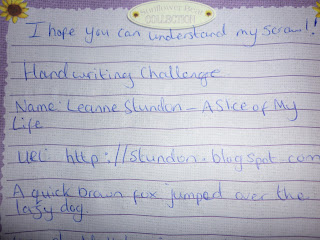 Sunflower Bear
COLLECTION
I hope you can understand my scrawl!!
Handwriting Challenge
Name: Leanne Stundon - A Slice of My
Life
url: http://stundon.blogspot.com
A quick brown fox jumped over the
lazy dog.